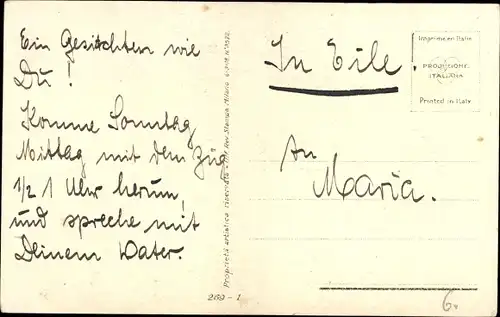 Ein Gesichterl wie
Du !
Komme Sonntag
Mittag mit dem Zug
1/2 1 Uhr herum,
und spreche mit
Deinem Vater.
Proprietà artistica riservata
269 - 1
In Eile
An
Maria.
Imprimé en Italie
PRODUZIONE
ITALIANA
Printed in Italy
6.